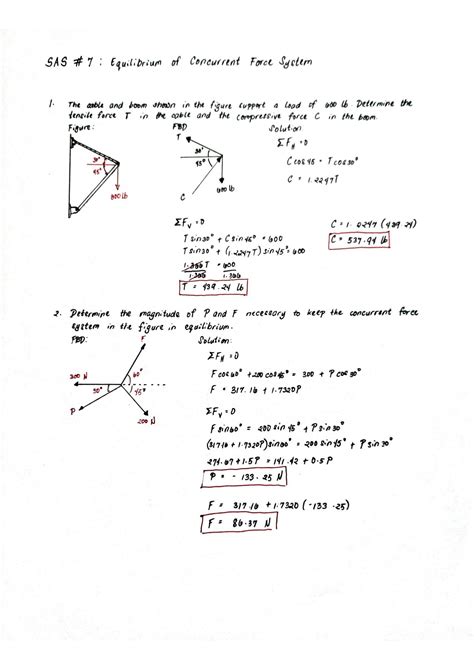 SAS #7 : Equilibrium of Concurrent Force System
1. The cable and boom shown in the figure support a load of 600 lb. Determine the
tensile force T in the cable and the compressive force C in the boom.
Figure:
30°
45°
600 lb
FBD
T
30°
45°
C
600 lb
Solution:
ΣF_H = 0
C cos 45 = T cos 30°
C = 1.2247T
ΣF_V = 0
T sin 30° + C sin 45° = 600
T sin 30° + (1.2247T) sin 45° = 600
1.366T = 600
1.366 1.366
T = 439.24 lb
C = 1.2247 (439.24)
C = 537.94 lb
2. Determine the magnitude of P and F necessary to keep the concurrent force
system in the figure in equilibrium.
FBD:
F
300 N
60°
30°
45°
P
200 N
Solution:
ΣF_H = 0
F cos 60° + 200 cos 45° = 300 + P cos 30°
F = 317.16 + 1.7320P
ΣF_V = 0
F sin 60° = 200 sin 45° + P sin 30°
(317.16 + 1.7320P) sin 60° = 200 sin 45° + P sin 30°
274.67 + 1.5P = 141.42 + 0.5P
P = - 133.25 N
F = 317.16 + 1.7320 (-133.25)
F = 86.37 N